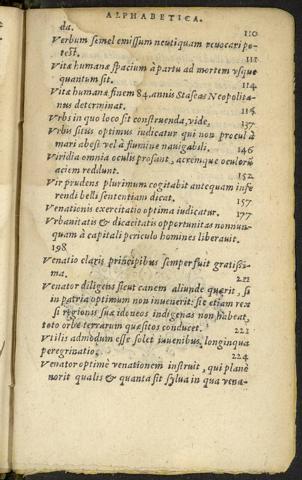 ALPHABETICA.
da. 110
Verbum semel emissum neutiquam reuocari po-
test. 111
Vitæ humanæ spacium à partu ad mortem vsque
quantum sit. 114
Vitæ humanæ finem 84. annis Staseas Neopolita-
nus determinat. 115
Vrbs in quo loco sit construenda, vide, 137
Vrbs situs optimus iudicatur qui non procul à
mari abest vel à flumine nauigabili. 146
Viridia omnia oculis prosunt, acremque oculorũ
aciem reddunt. 152
Vir prudens plurimum cogitabit antequam infe
rendi belli sententiam dicat. 157
Venationis exercitatio optima iudicatur. 177
Vrbanitatis & dicacitatis opportunitas nonnun-
quam à capitali periculo homines liberauit.
198
Venatio claris principibus semper fuit gratissi-
ma. 212
Venator diligens sicut canem aliunde quærit, si
in patria optimum non inuenerit: sic etiam rex
si regionis suæ idoneos indigenas non habeat,
toto orbe terrarum quæsitos conducet. 221
Vtilis admodum esse solet iuuenibus, longinqua
peregrinatio. 224
Venator optimè venationem instruit, qui planè
norit qualis & quanta sit sylua in qua vena-